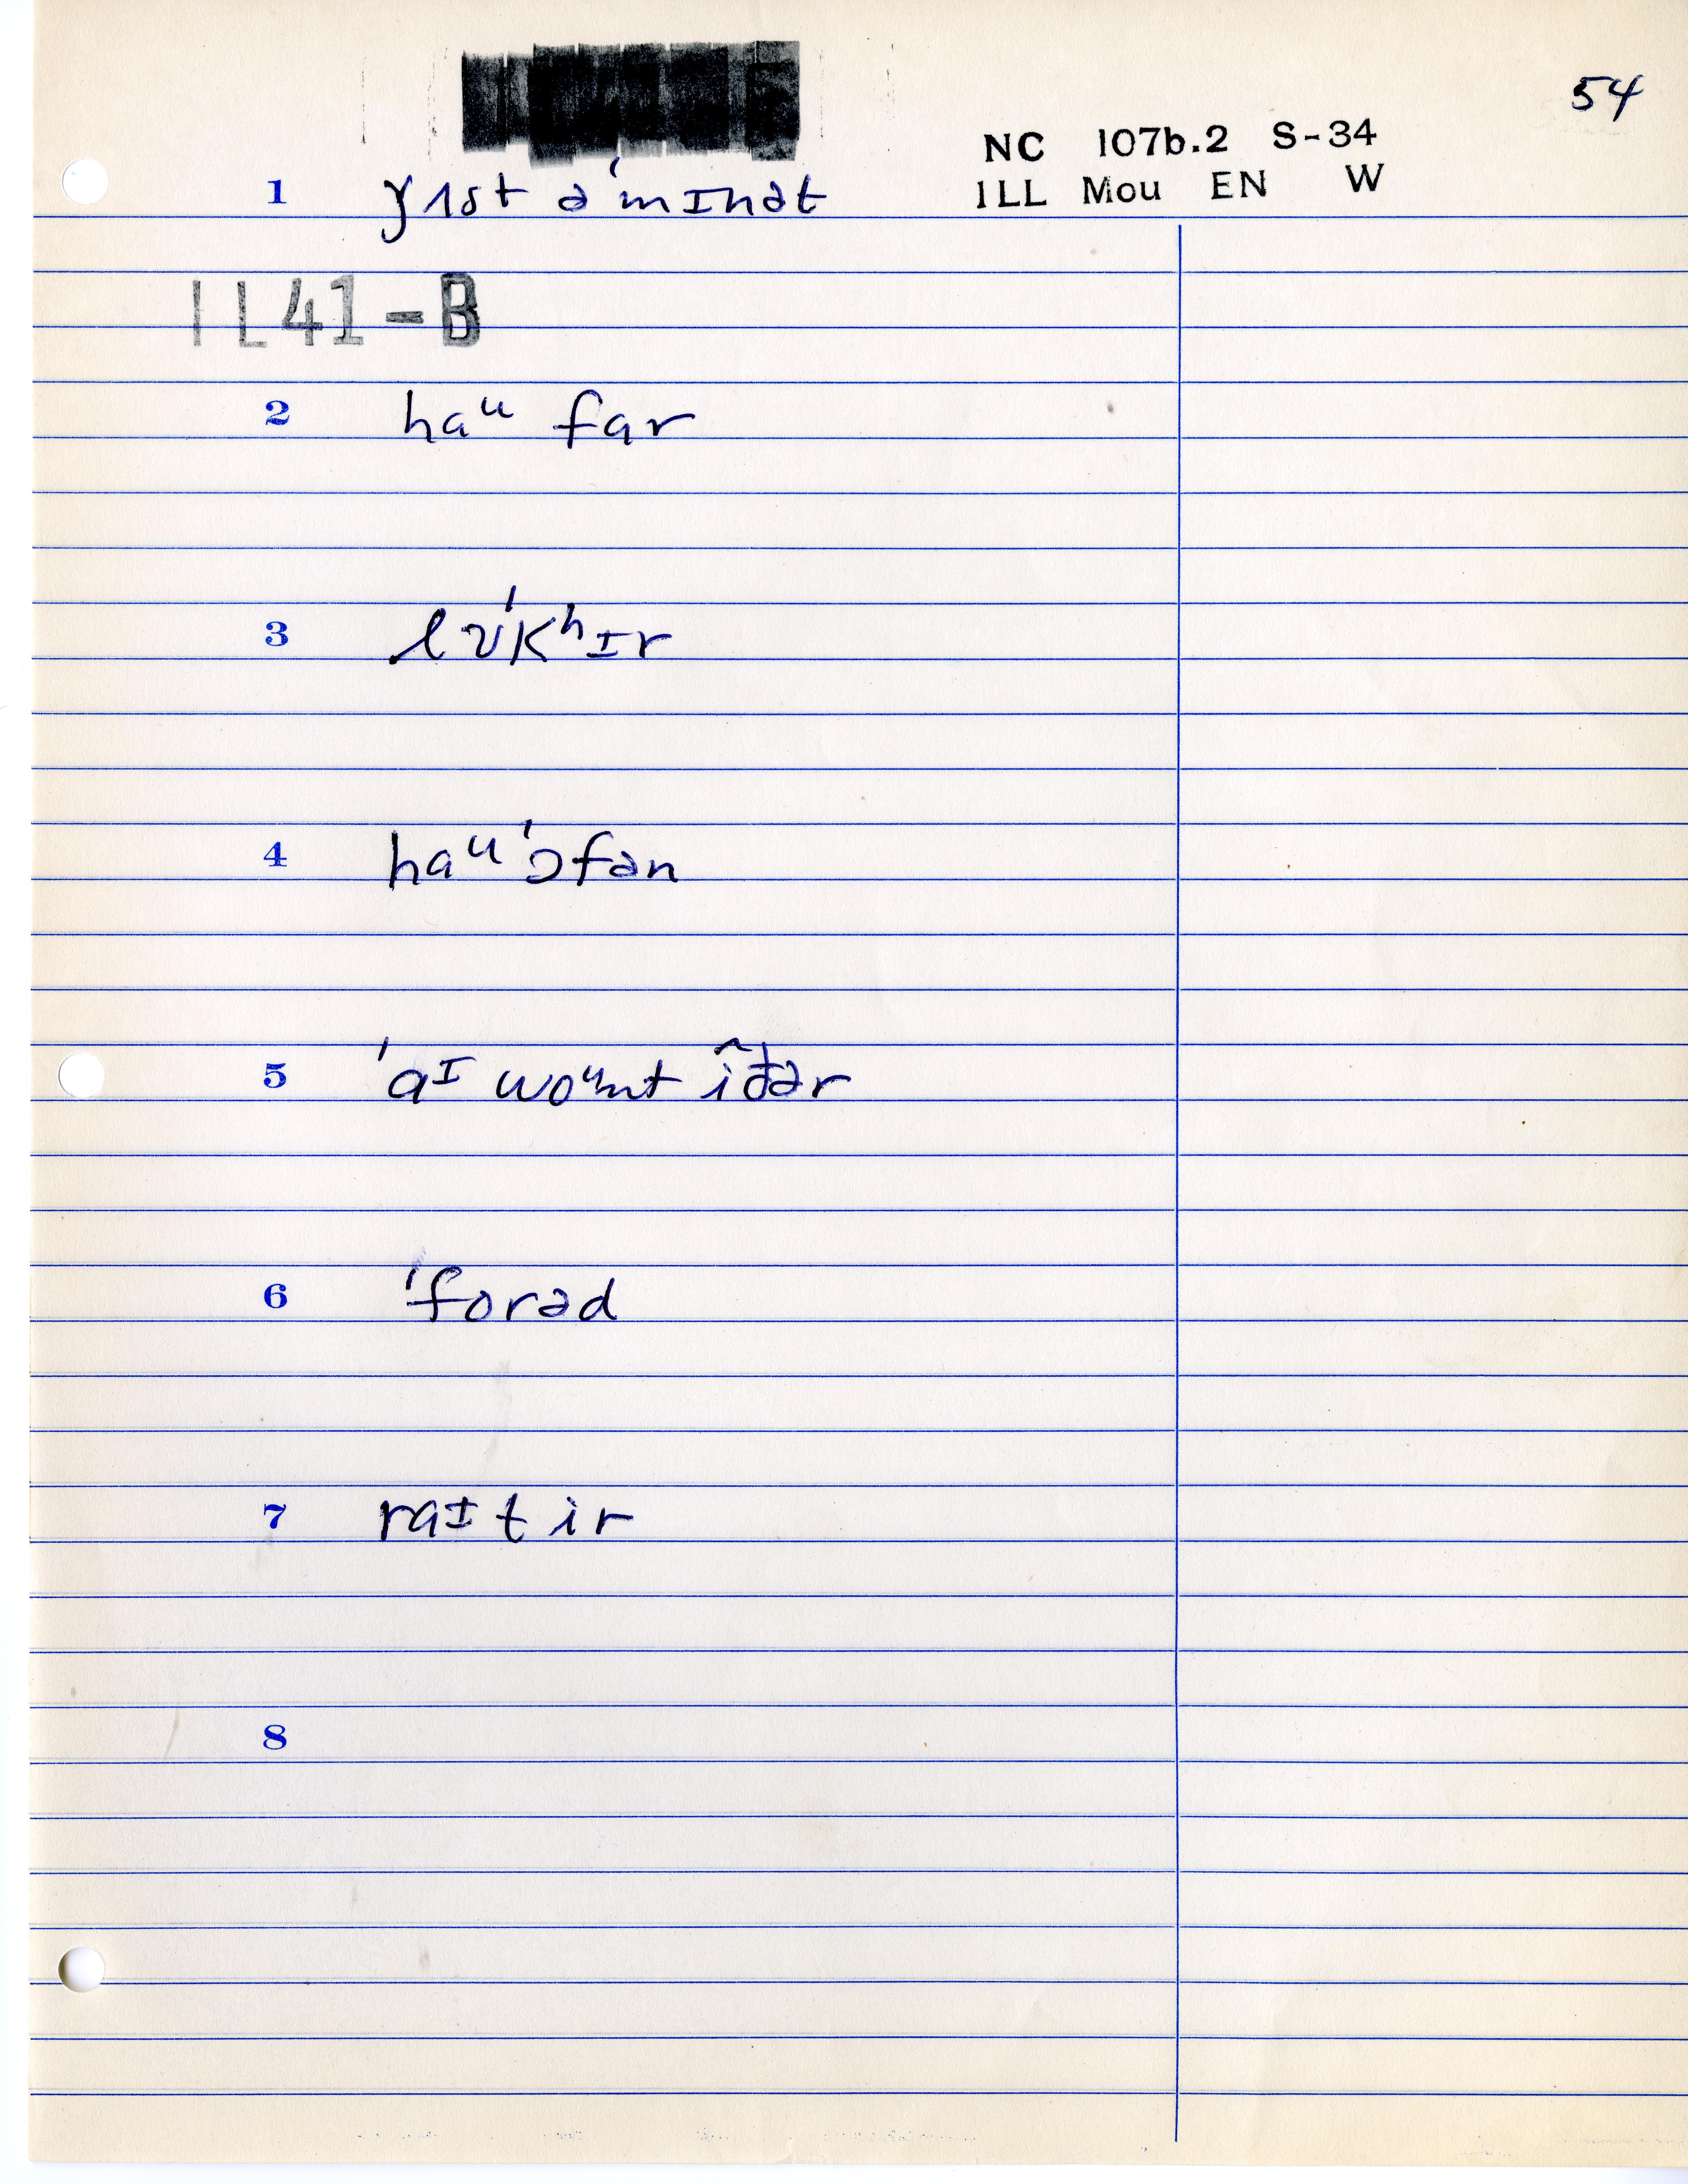 54
NC 107b.2 S-34
ILL Mou EN W
1 ǰɪst ə ˈmɪnət
IL41-B
2 haᵘ far
3 lʊˈkʰɪr
4 haᵘ ˈɔfən
5 ˈaᴵ woᵘnt îðər
6 ˈforəd
7 raᴵt ir
8